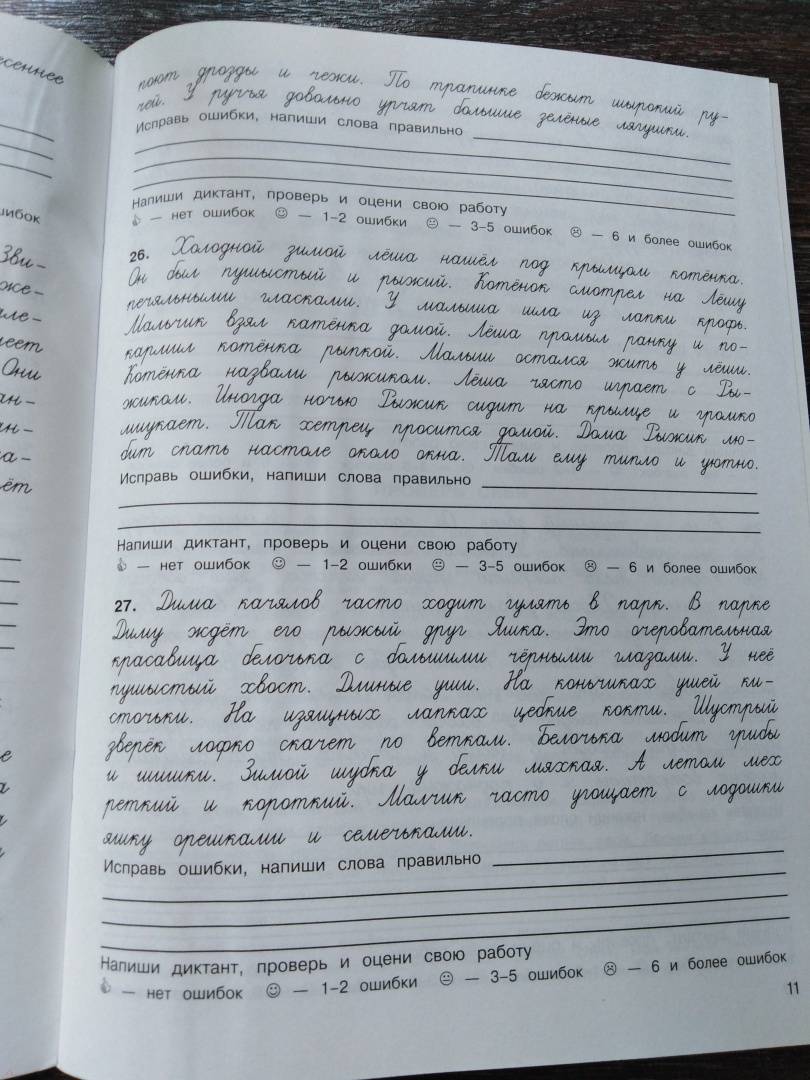 есеннее
поют дрозды и чежи. По трапинке бежыт шырокий ру-
чей. У руччья довольно урчят большие зелёные лягушки.
Исправь ошибки, напиши слова правильно
Напиши диктант, проверь и оцени свою работу
— нет ошибок ☺ — 1–2 ошибки 😐 — 3–5 ошибок ☹ — 6 и более ошибок
26. Холодной зимой лёша нашёл под крылцом котёнка.
Он был пушыстый и рыжий. Котёнок смотрел на Лёшу
печяльными гласками. У малыша шла из лапки крофь.
Мальчик взял катёнка домой. Лёша промыл ранку и по-
кармил котёнка рыпкой. Малыш остался жить у лёши.
Котёнка назвали рыжиком. Лёша чясто играет с Ры-
жиком. Иногда ночью Рыжик сидит на крылце и громко
миукает. Так хетрец просится домой. Дома Рыжик лю-
бит спать настоле около окна. Там ему типло и уютно.
Исправь ошибки, напиши слова правильно
Напиши диктант, проверь и оцени свою работу
— нет ошибок ☺ — 1–2 ошибки 😐 — 3–5 ошибок ☹ — 6 и более ошибок
27. Дима качялов часто ходит гулять в парк. В парке
Диму ждёт его рыжый друг Яшка. Это очеровательная
красавица белочька с большими чёрными глазами. У неё
пушыстый хвост. Длиные уши. На коньчиках ушей ки-
сточьки. На изящных лапках цебкие кокти. Шустрый
зверёк лофко скачет по веткам. Белочька любит грибы
и шишки. Зимой шубка у белки мяхкая. А летом мех
реткий и короткий. Малчик часто угощает с лодошки
яшку орешками и семечьками.
Исправь ошибки, напиши слова правильно
Напиши диктант, проверь и оцени свою работу
— нет ошибок ☺ — 1–2 ошибки 😐 — 3–5 ошибок ☹ — 6 и более ошибок
11